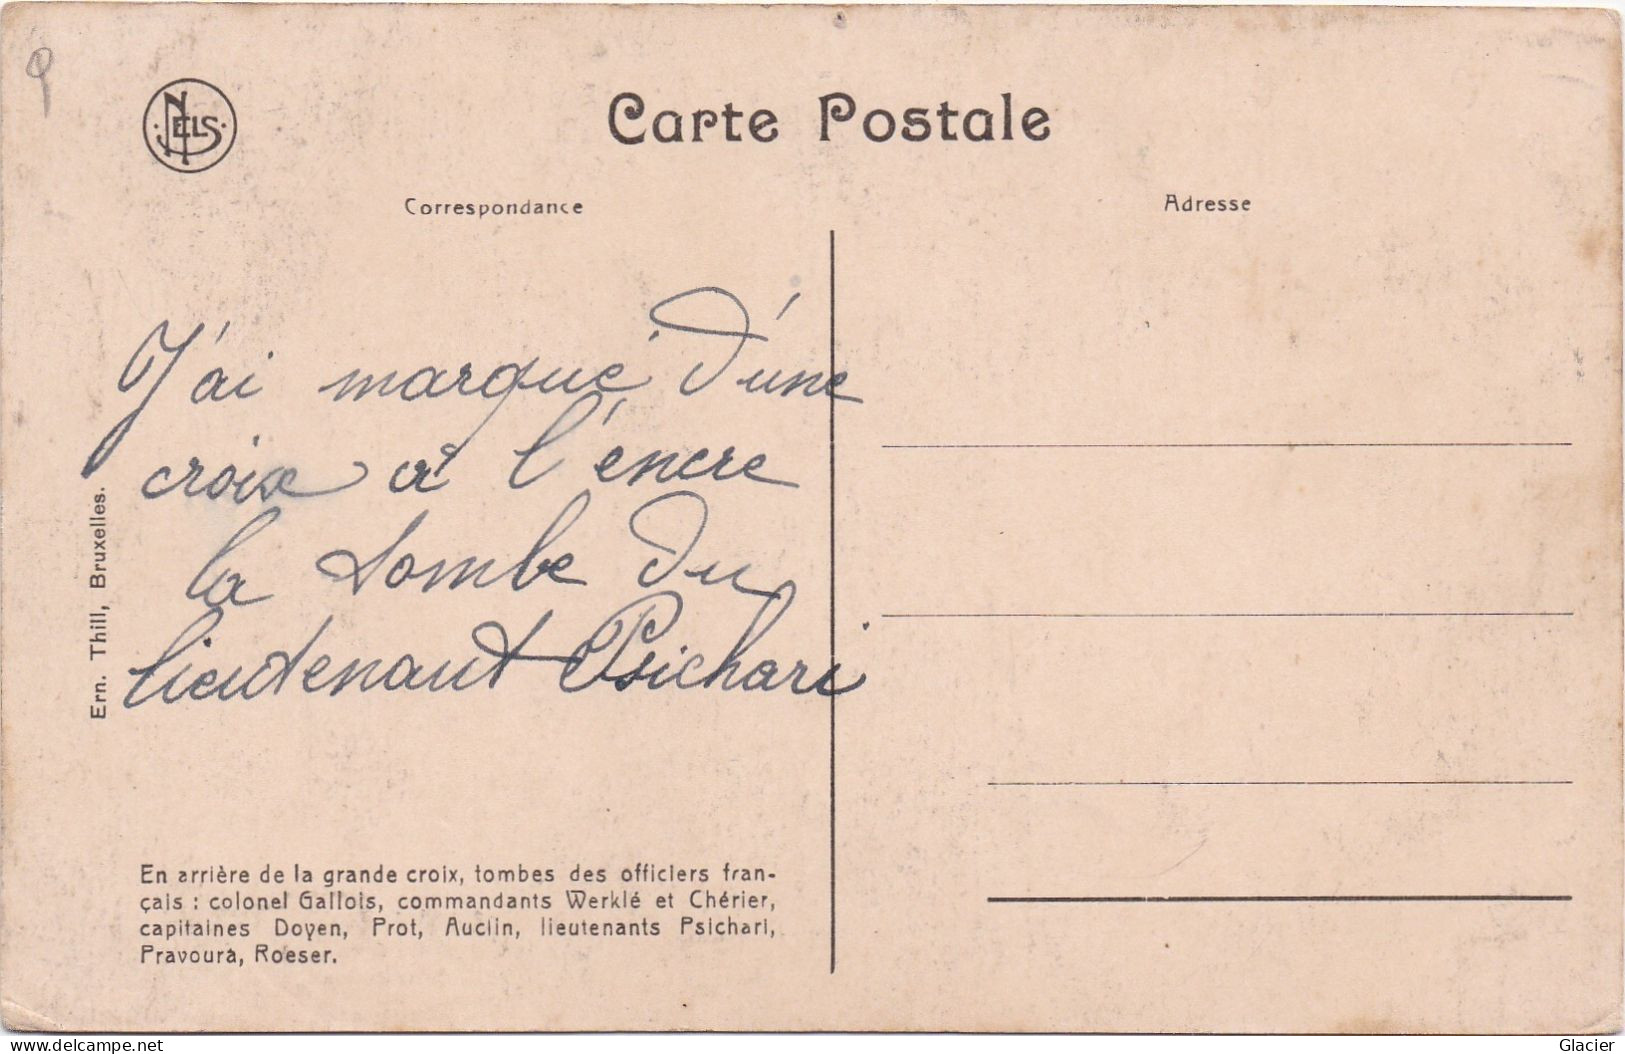 NELS
Carte Postale
Correspondance
Adresse
J'ai marqué d'une
croix à l'encre
la tombe du
lieutenant Psichari
Ern. Thill, Bruxelles.
En arrière de la grande croix, tombes des officiers fran-
çais : colonel Gallois, commandants Werklé et Chérier,
capitaines Doyen, Prot, Auclin, lieutenants Psichari,
Pravoura, Roeser.
delcampe.net
Glacier